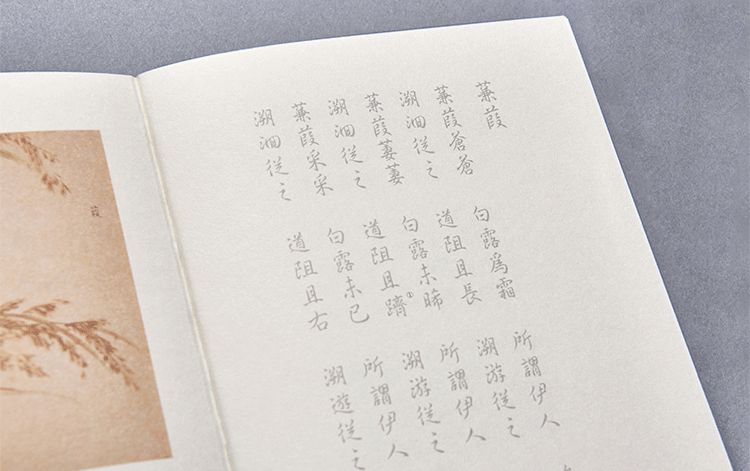 蒹葭
蒹葭蒼蒼 白露爲霜 所謂伊人
溯洄從之 道阻且長 溯游從之
蒹葭萋萋 白露未晞 所謂伊人
溯洄從之 道阻且躋① 溯游從之
蒹葭采采 白露未已 所謂伊人
溯洄從之 道阻且右 溯遊從之
葭